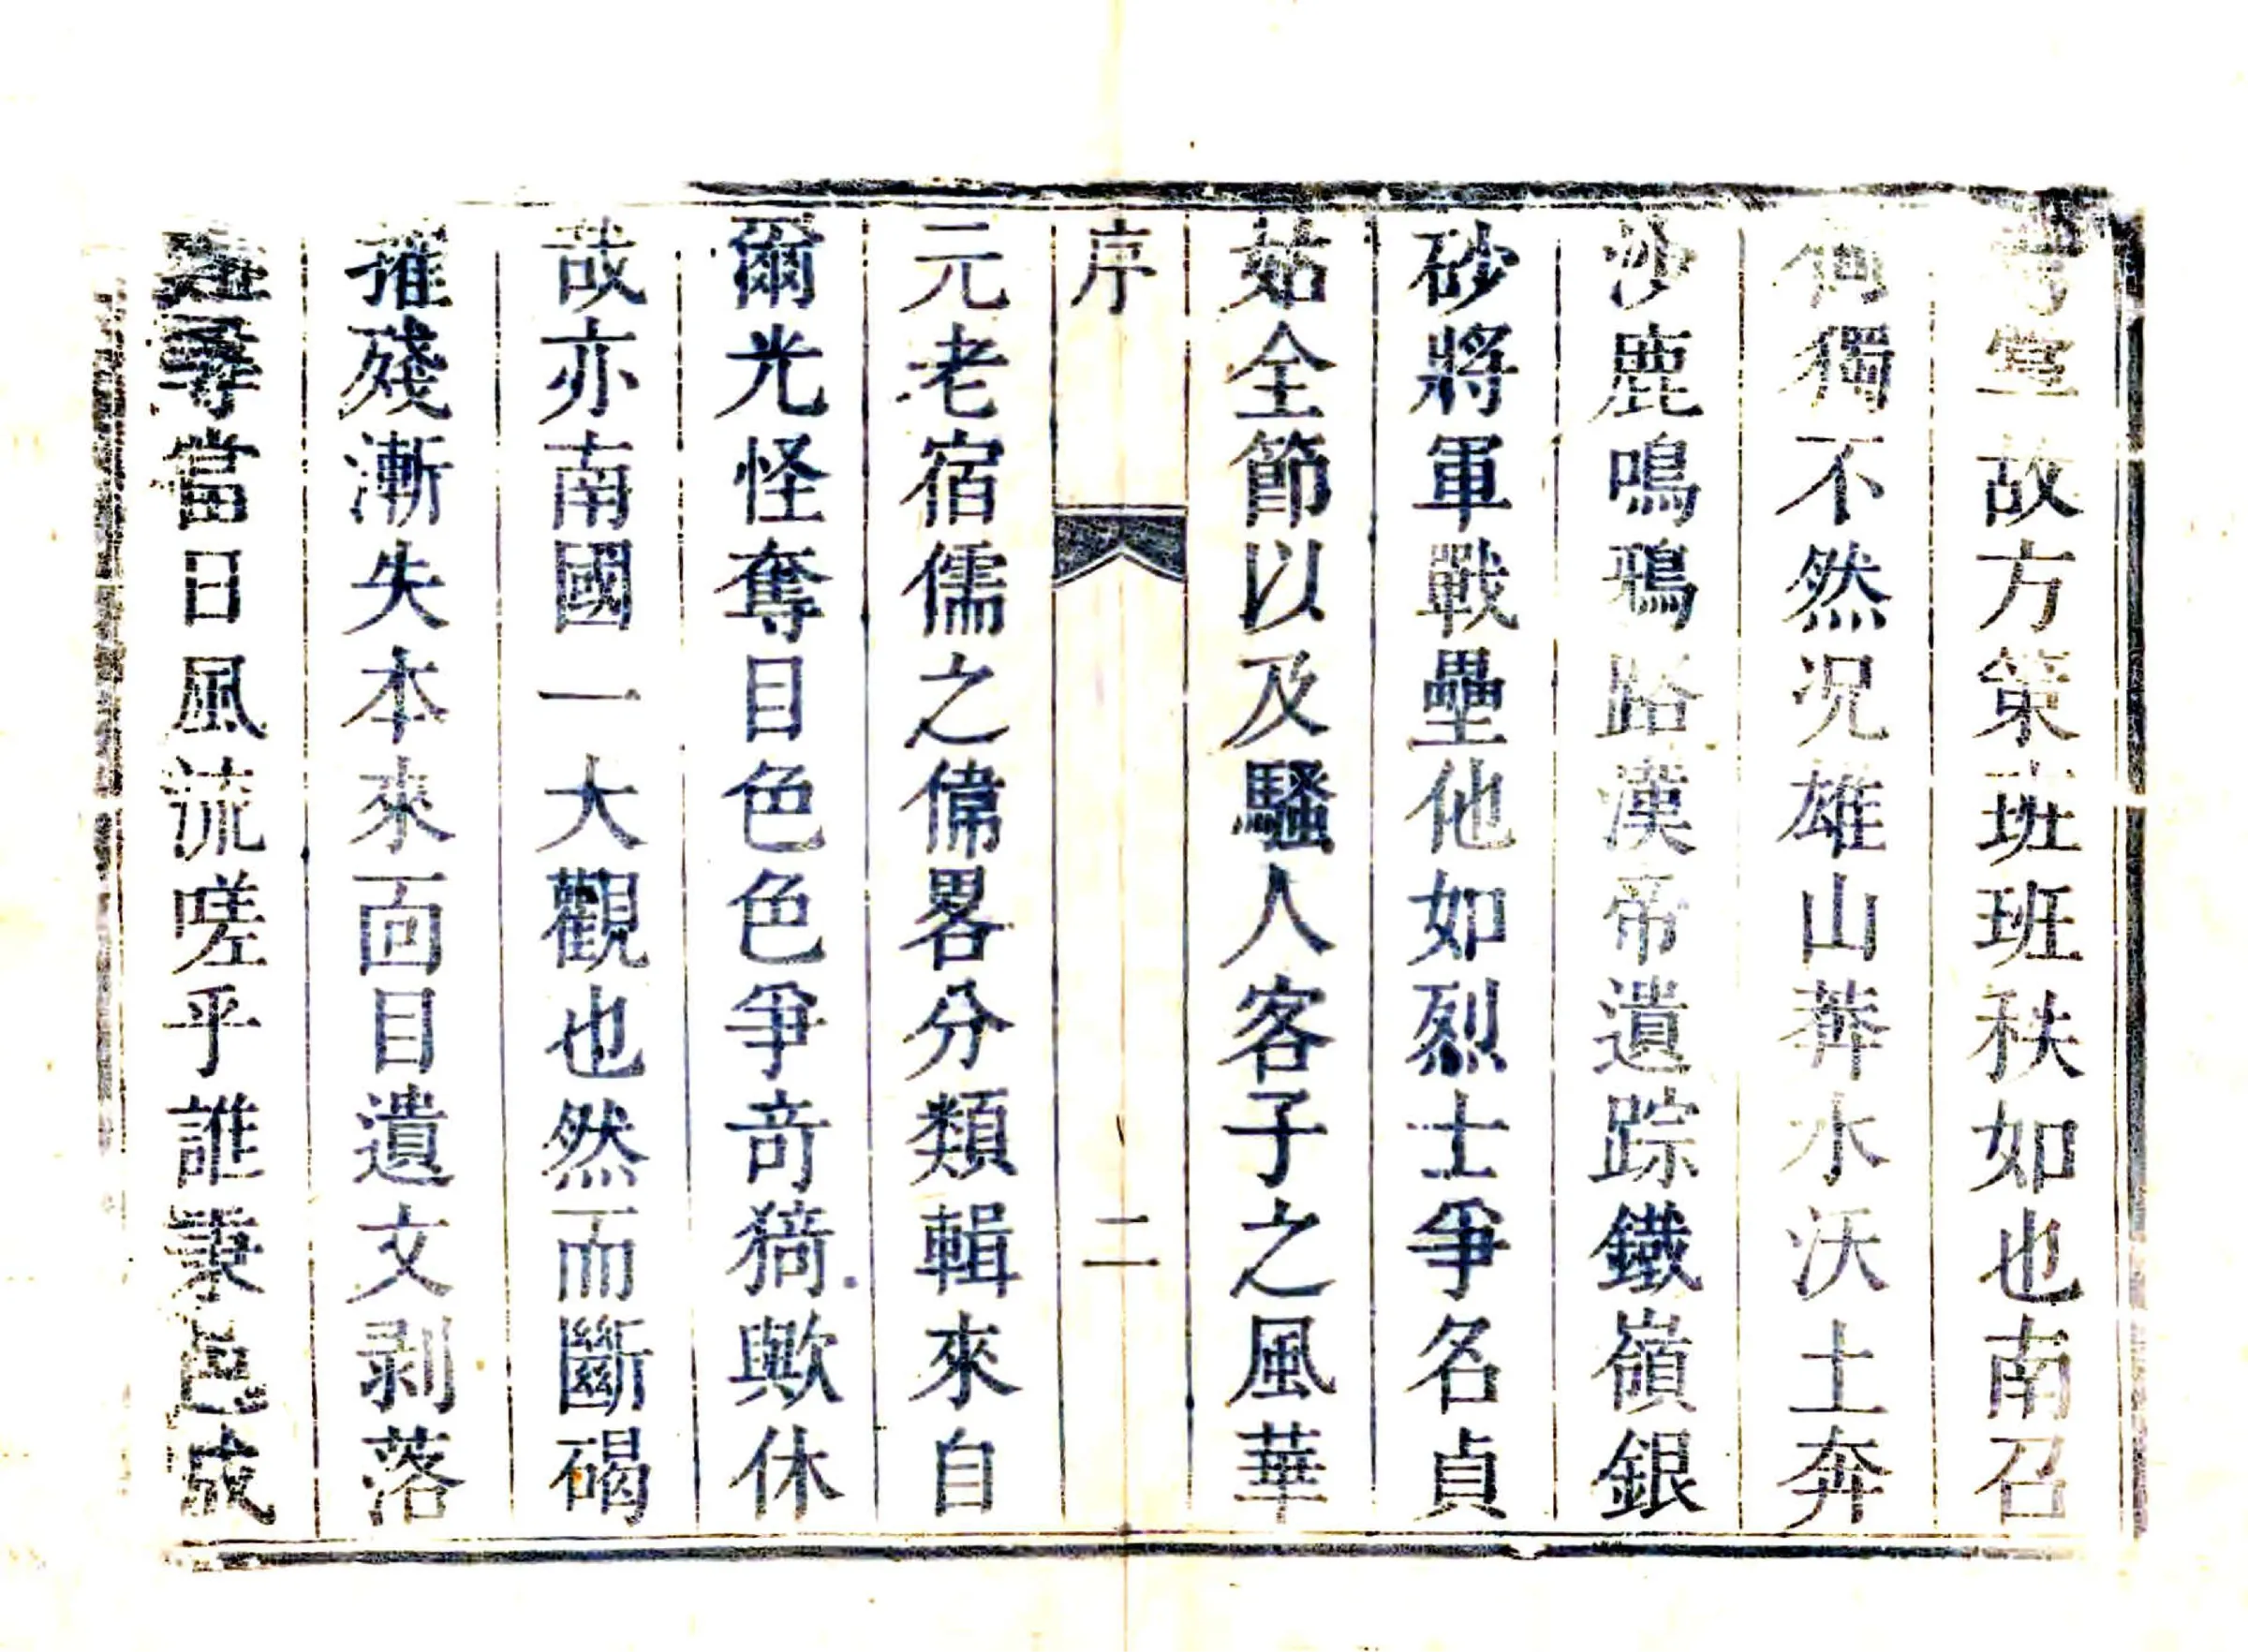 故方策班班秩如也南召
何獨不然况雄山莾水沃土奔
沙鹿鳴鴉路漢帝遺踪鐵嶺銀
砂將軍戰壘他如烈士爭名貞
姑全節以及騷人客子之風華
序 二
元老宿儒之偉畧分類輯來自
爾光怪奪目色色爭竒猗歟休
哉亦南國一大觀也然而斷碣
摧殘漸失本來面目遺文剥落
尋當日風流嗟乎誰秉邑成